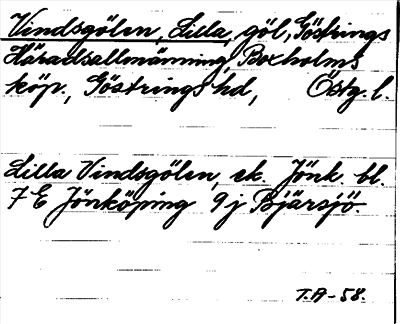 Vindsgölen, Lilla, göl, Göstrings
Häradsallmänning, Boxholms
köp., Göstrings hd, Östg. l.
Lilla Vindsgölen, ek. Jönk. bl.
7 E Jönköping 9 j Bjärsjö.
T.A-58.